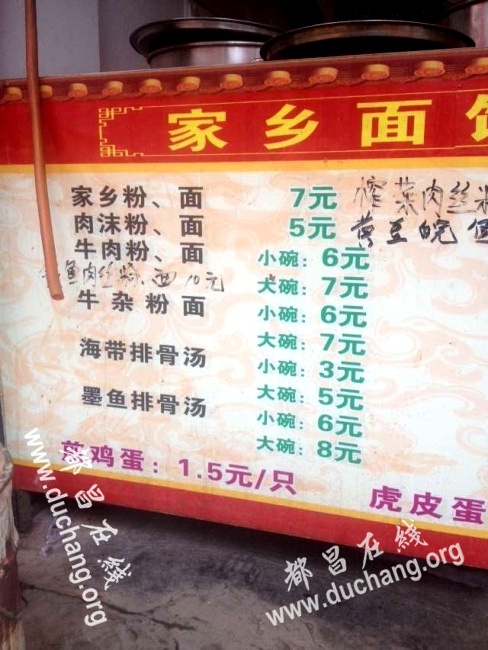 家乡面
家乡粉、面 7元 榨菜肉丝粉
肉沫粉、面 5元 黄豆皖
牛肉粉、面 小碗：6元
鱼肉丝粉、面10元 大碗：7元
牛杂粉面 小碗：6元
大碗：7元
海带排骨汤 小碗：3元
大碗：5元
墨鱼排骨汤 小碗：6元
大碗：8元
鸡蛋：1.5元/只 虎皮蛋
都昌在线
www.duchang.org
都昌在线
www.duchang.org